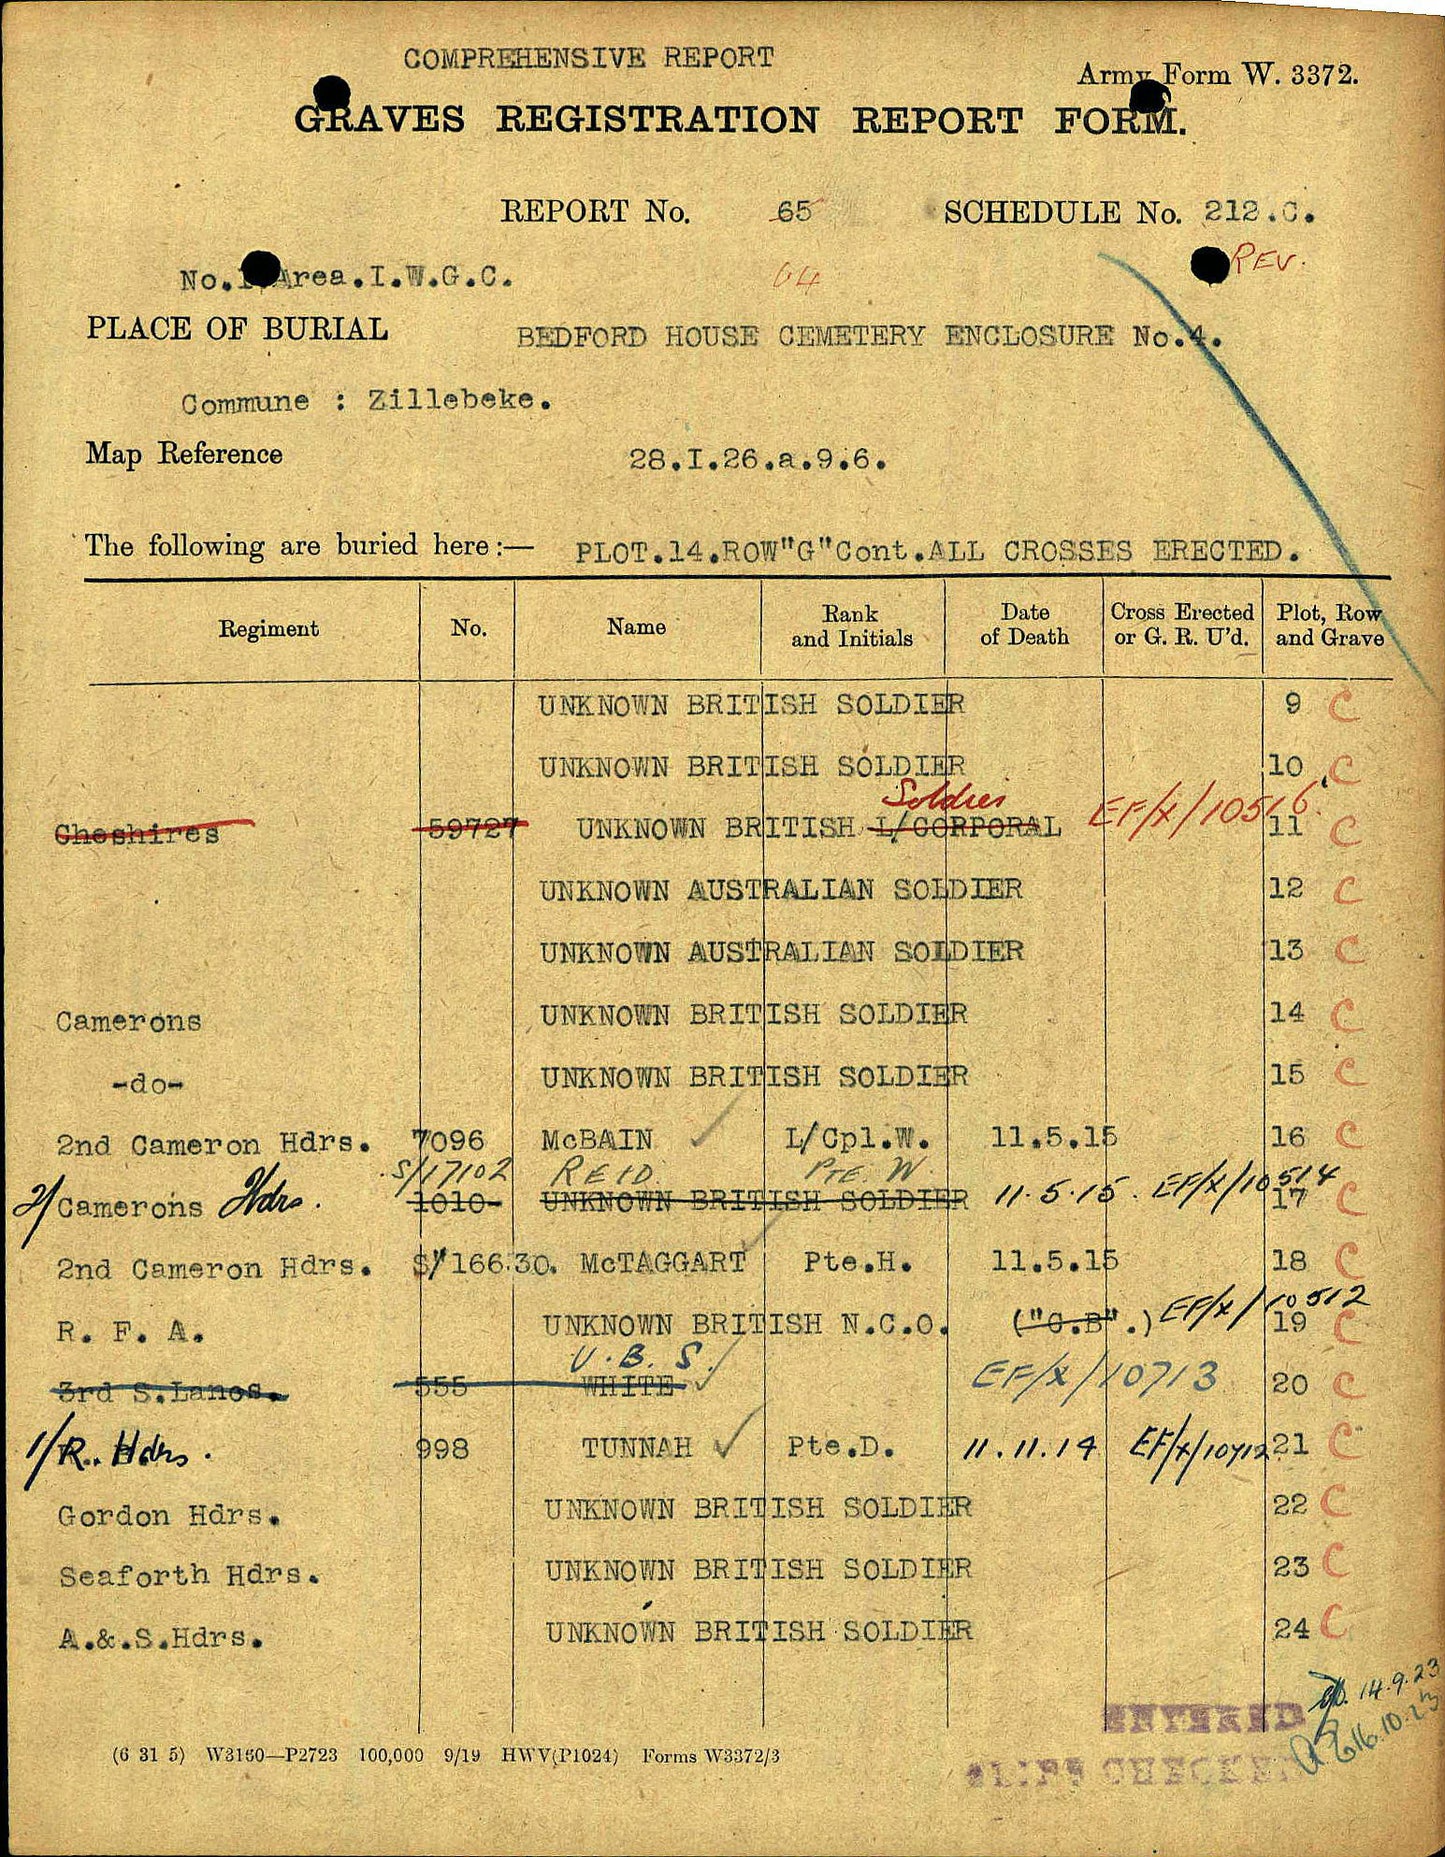 COMPREHENSIVE REPORT
Army Form W. 3372.
GRAVES REGISTRATION REPORT FORM.
REPORT No. 65 SCHEDULE No. 212.C.
No.1 Area.I.W.G.C. 64 REV.
PLACE OF BURIAL BEDFORD HOUSE CEMETERY ENCLOSURE No.4.
Commune : Zillebeke.
Map Reference 28.I.26.a.9.6.
The following are buried here:— PLOT.14.ROW"G"Cont.ALL CROSSES ERECTED.
Regiment No. Name Rank and Initials Date of Death Cross Erected or G. R. U'd. Plot, Row and Grave
UNKNOWN BRITISH SOLDIER 9 C
UNKNOWN BRITISH SOLDIER 10 C
Soldier EF/X/10516
Cheshires 59727 UNKNOWN BRITISH L/CORPORAL 11 C
UNKNOWN AUSTRALIAN SOLDIER 12 C
UNKNOWN AUSTRALIAN SOLDIER 13 C
Camerons UNKNOWN BRITISH SOLDIER 14 C
-do- UNKNOWN BRITISH SOLDIER 15 C
2nd Cameron Hdrs. 7096 McBAIN L/Cpl.W. 11.5.15 16 C
S/17102 REID PTE. W.
2/Camerons Hdrs. 1010- UNKNOWN BRITISH SOLDIER 11.5.15. EF/X/10514 17 C
2nd Cameron Hdrs. S/16630. McTAGGART Pte.H. 11.5.15 18 C
R. F. A. UNKNOWN BRITISH N.C.O. ("G.B".) EF/X/10512 19 C
U.B.S.
3rd S.Lancs. 555 WHITE EF/X/10713 20 C
1/R. Hdrs. 998 TUNNAH Pte.D. 11.11.14 EF/X/10712 21 C
Gordon Hdrs. UNKNOWN BRITISH SOLDIER 22 C
Seaforth Hdrs. UNKNOWN BRITISH SOLDIER 23 C
A.&.S.Hdrs. UNKNOWN BRITISH SOLDIER 24 C
14.9.23
16.10.23
(6 31 5) W3160—P2723 100,000 9/19 HWV(P1024) Forms W3372/3
CHECKED